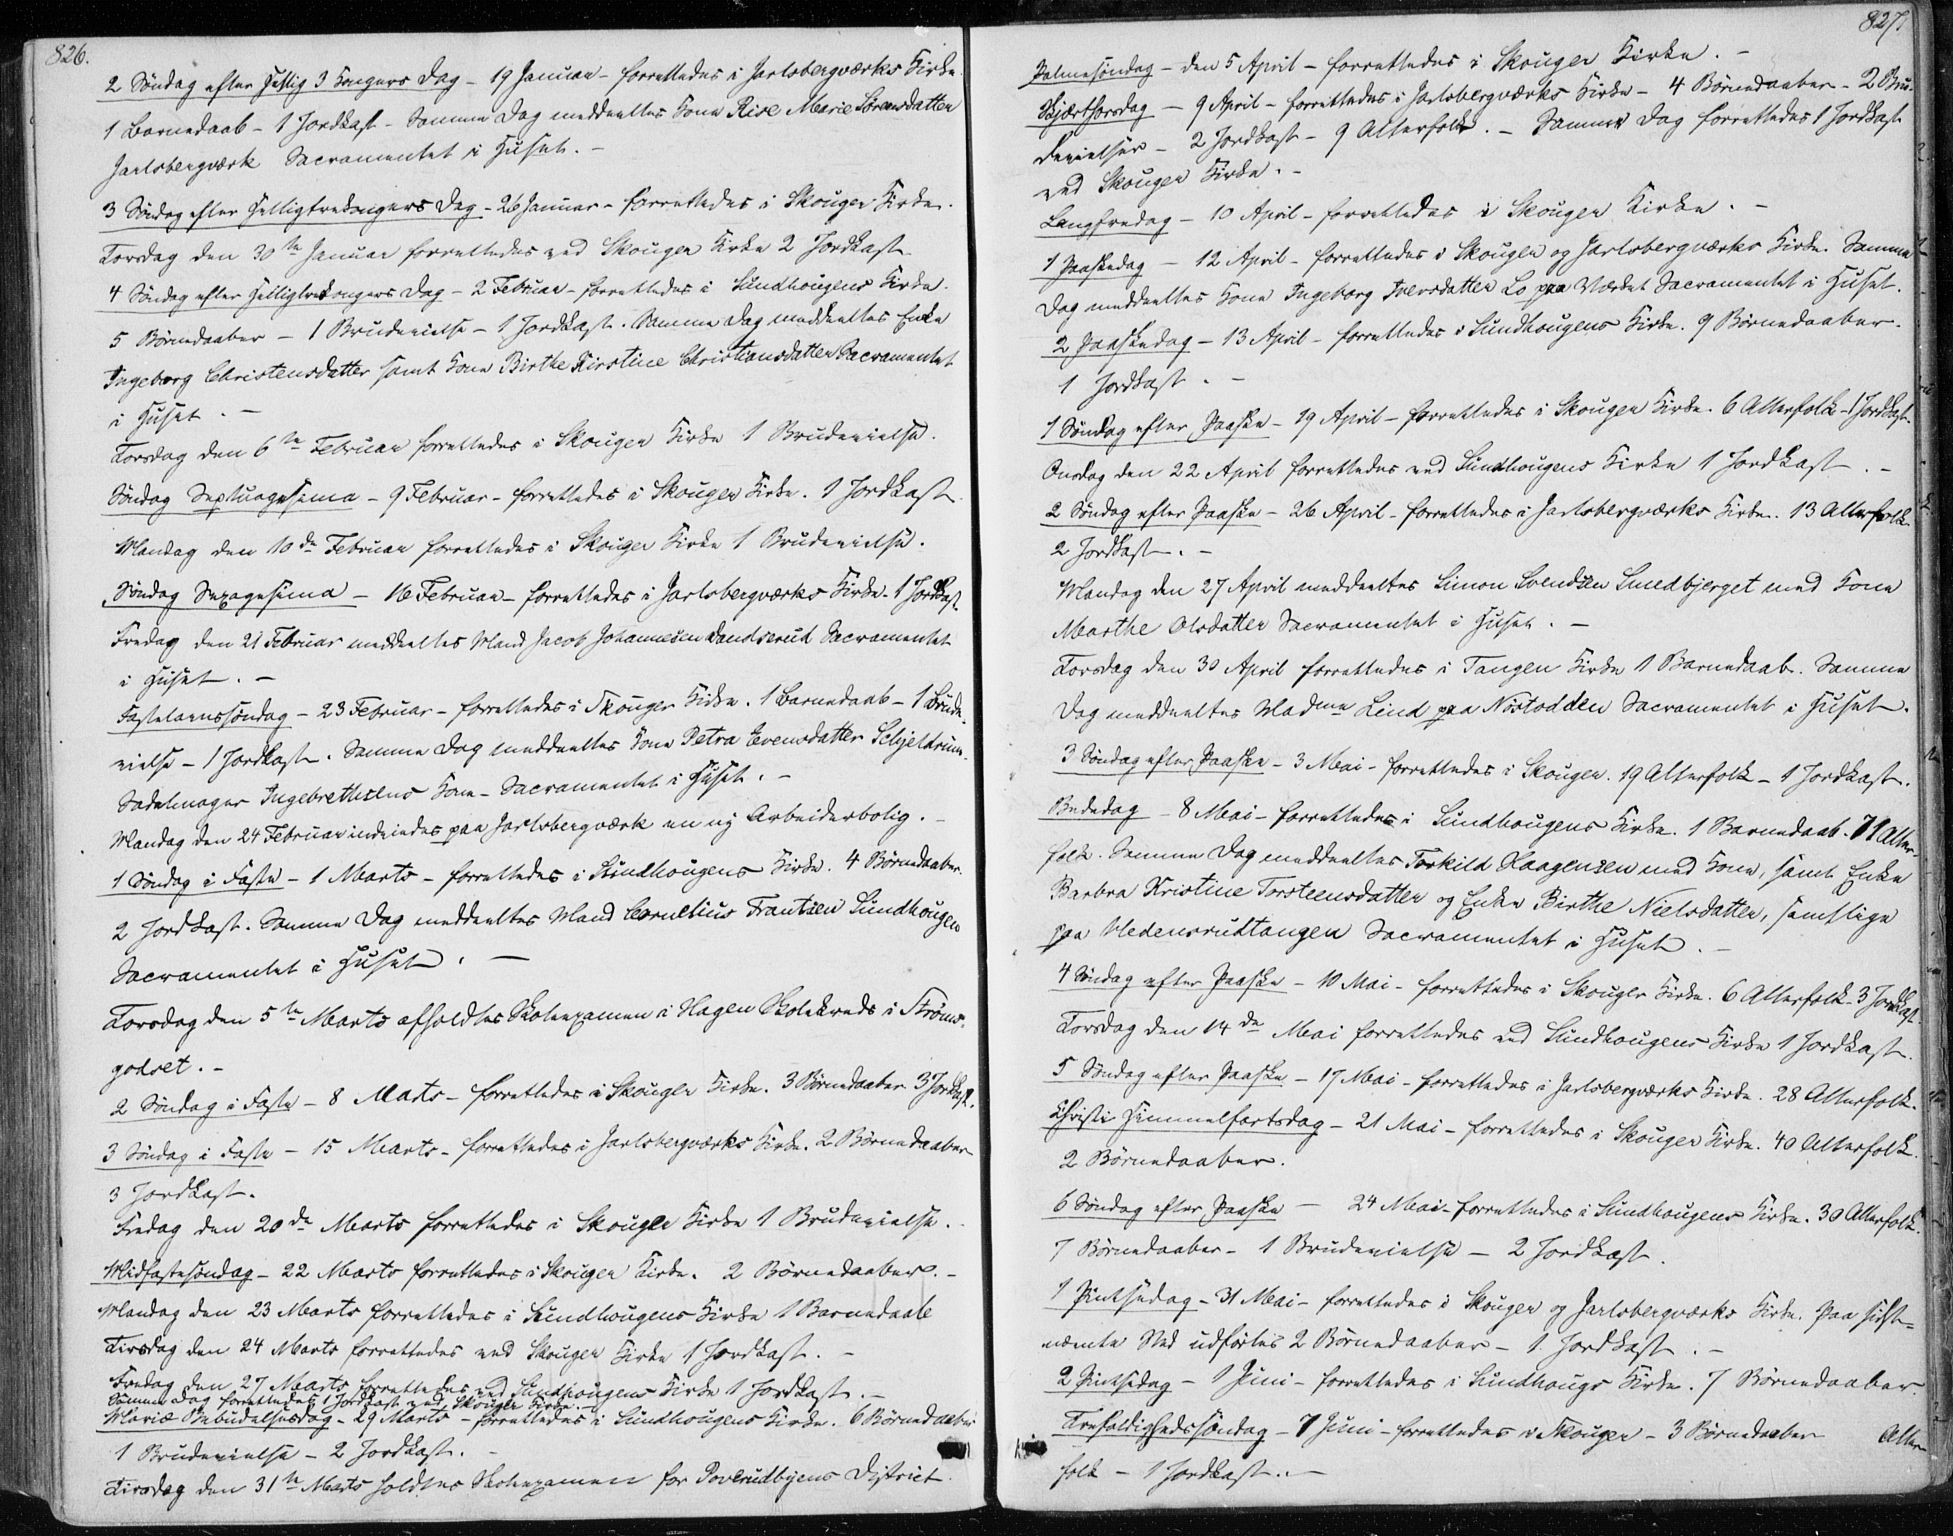 826.
2 Søndag efter Hellig 3 Kongers Dag - 19 Januar - forrettedes i Jarlsbergværks Kirke.
1 Barnedaab - 1 Jordkast - Samme Dag meddeeltes Kone Rise Marie Sørensdatter
Jarlsbergværk Sacramentet i Huset. -
3 Søndag efter Helligtrekongers Dag - 26 Januar - forrettedes i Skouger Kirke.
Torsdag den 30te Januar forrettedes ved Skouger Kirke 2 Jordkast
4 Søndag efter Helligtrekongers Dag - 2 Februar - forrettedes i Sundhougens Kirke.
5 Børnedaaber - 1 Brudevielse - 1 Jordkast. Samme Dag meddeeltes Enke
Ingeborg Christensdatter samt Kone Birthe Kirstine Christiansdatter Sacramentet
i Huset. -
Torsdag den 6te Februar forrettedes i Skouger Kirke 1 Brudevielse.
Søndag Septuagesima - 9 Februar - forrettedes i Skouger Kirke. 1 Jordkast
Mandag den 10de Februar forrettedes i Skouger Kirke 1 Brudevielse.
Søndag Sexagesima - 16 Februar - forrettedes i Jarlsbergværks Kirke - 1 Jordkast
Fredag den 21 Februar meddeeltes Mand Jacob Johannesen Landserud Sacramentet
i Huset. -
Fastelavnssøndag - 23 Februar - forrettedes i Skouger Kirke. 1 Barnedaab - 1 Brude-
vielse - 1 Jordkast. Samme Dag meddeeltes Kone Petra Evensdatter Schjeldrum-
Sadelmager Ingebrethsens Kone - Sacramentet i Huset. -
Mandag den 24 Februar indviedes paa Jarlsbergværk en ny Arbeiderbolig. -
1 Søndag i Faste - 1 Marts - forrettedes i Sundhougens Kirke. 4 Børnedaaber.
2 Jordkast. Samme Dag meddeeltes Mand Cornelius Frantzen Sundhougen
Sacramentet i Huset. -
Torsdag den 5te Marts afholdtes Skoleexamen i Hagen Skolekreds i Strøms-
godset. -
2 Søndag i Faste - 8 Marts - forrettedes i Skouger Kirke. 3 Børnedaaber 3 Jordkast.
3 Søndag i Faste - 15 Marts - forrettedes i Jarlsbergværks Kirke. 2 Børnedaaber
3 Jordkast.
Fredag den 20de Marts forrettedes i Skouger Kirke 1 Brudevielse.
Midfastesøndag - 22 Marts forrettedes i Skouger Kirke. 2 Børnedaaber. -
Mandag den 23 Marts forrettedes i Sundhougens Kirke 1 Barnedaab
Tirsdag den 24 Marts forrettedes ved Skouger Kirke 1 Jordkast. -
Fredag den 27 Marts forrettedes ved Sundhougens Kirke 1 Jordkast. -
Samme Dag forrettedes 1 Jordkast ved Skouger Kirke. -
Mariæ Bebudelsesdag - 29 Marts - forrettedes i Sundhougens Kirke. 6 Børnedaaber
1 Brudevielse - 2 Jordkast. -
Tirsdag den 31te Marts holdtes Skoleexamen for Poverudbyens District.
827.
Palmesøndag - den 5 April - forrettedes i Skouger Kirke. -
Skjærthorsdag - 9 April - forrettedes i Jarlsbergværks Kirke - 4 Børnedaaber - 2 Bru-
devielser - 2 Jordkast - 9 Alterfolk. - Samme Dag forrettedes 1 Jordkast
ved Skouger Kirke. -
Langfredag - 10 April - forrettedes i Skouger Kirke. -
1 Paaskedag - 12 April - forrettedes i Skouger og Jarlsbergværks Kirke. Samme
Dag meddeeltes Kone Ingeborg Iversdatter Lo paa Værket Sacramentet i Huset.
2 Paaskedag - 13 April - forrettedes i Sundhougens Kirke. 9 Børnedaaber.
1 Jordkast. -
1 Søndag efter Paaske - 19 April - forrettedes i Skouger Kirke. 6 Alterfolk - 1 Jordkast.
Onsdag den 22 April forrettedes ved Sundhougens Kirke 1 Jordkast. -
2 Søndag efter Paaske - 26 April - forrettedes i Jarlsbergværks Kirke. 13 Alterfolk
2 Jordkast. -
Mandag den 27 April meddeeltes Simon Svendsen Smedbjerget med Kone
Marthe Olsdatter Sacramentet i Huset. -
Torsdag den 30 April forrettedes i Tangen Kirke 1 Barnedaab. Samme
Dag meddeeltes Madme Lind paa Nøstodden Sacramentet i Huset.
3 Søndag efter Paaske - 3 Mai - forrettedes i Skouger. 19 Alterfolk - 1 Jordkast.
Bededag - 8 Mai - forrettedes i Sundhougens Kirke. 1 Barnedaab. 71 Alter-
folk. Samme Dag meddeeltes Torkild Haagensen med Kone, samt Enke
Barbra Kristine Torsteensdatter og Enke Birthe Nielsdatter, samtlige
paa Hedensrudtangen Sacramentet i Huset. -
4 Søndag efter Paaske - 10 Mai - forrettedes i Skouger Kirke. 6 Alterfolk - 3 Jordkast.
Torsdag den 14de Mai forrettedes ved Sundhougens Kirke 1 Jordkast.
5 Søndag efter Paaske - 17 Mai - forrettedes i Jarlsbergværks Kirke. 28 Alterfolk.
Christi Himmelfartsdag - 21 Mai - forrettedes i Skouger Kirke. 40 Alterfolk.
2 Børnedaaber.
6 Søndag efter Paaske - 24 Mai - forrettedes i Sundhougens Kirke. 30 Alterfolk.
7 Børnedaaber - 1 Brudevielse - 2 Jordkast.
1 Pintsedag - 31 Mai - forrettedes i Skouger og Jarlsbergværks Kirke. Paa sidst-
nævnte Sted udførtes 2 Børnedaaber - 1 Jordkast. -
2 Pintsedag - 1 Juni - forrettedes i Sundhougs Kirke. 7 Børnedaaber.
Trefoldighedssøndag - 7 Juni - forrettedes i Skouger - 3 Børnedaaber Alter-
folk - 1 Jordkast. -